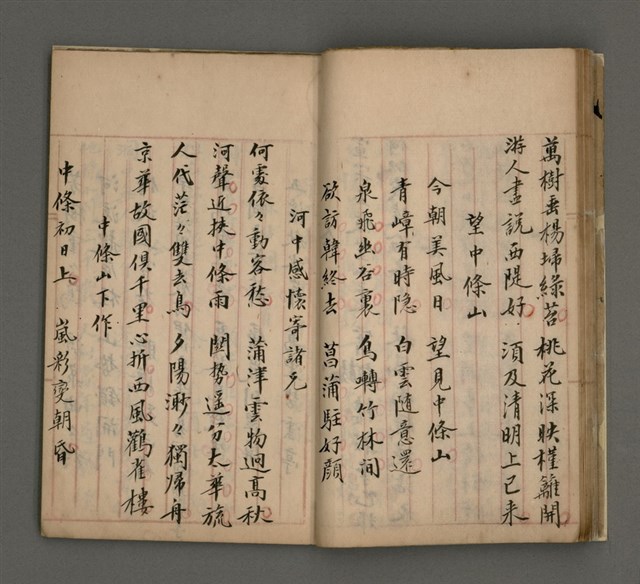 萬樹垂楊埽綠苔 桃花深映槿籬開
游人盡説西隄好 須及清明上巳来
望中條山
今朝美風日 望見中條山
青嶂有時隐 白雲隨意還
泉飛坐石裏 鳥囀竹林間
欲訪韓終去 菖蒲駐好顔
河中感懐寄諸兄
何處依々動客愁 蒲津雲物迥高秋
河聲近挾中條雨 関勢遥分太華旒
人代茫々雙去鳥 夕陽渺々獨歸舟
京華故國俱千里 心折西風鸛雀樓
中條山下作
中條初日上 嵐彩變朝昏